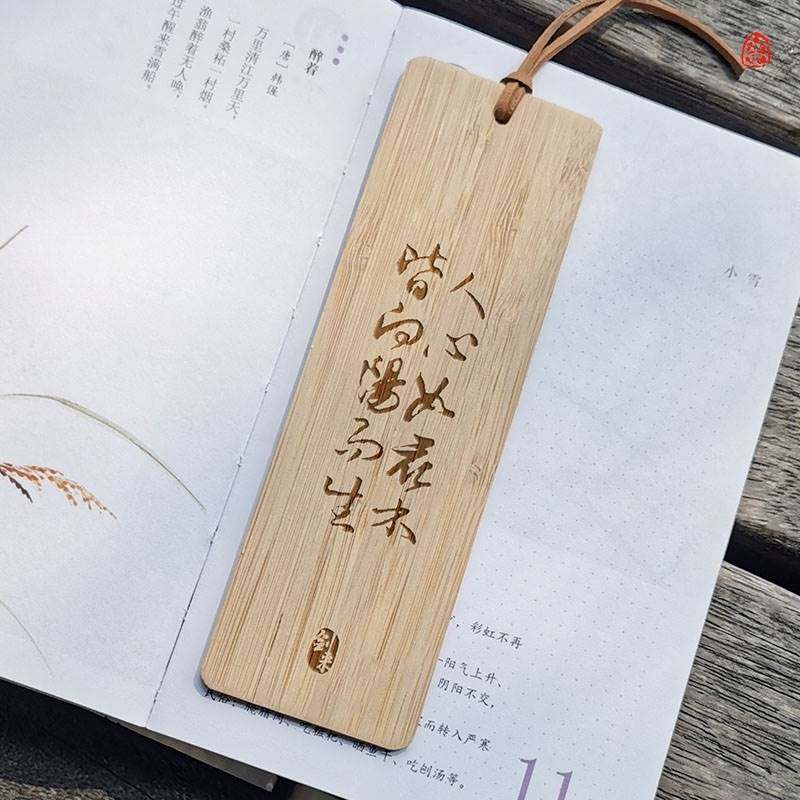 醉着
[唐] 韩偓
万里清江万里天,
一村桑柘一村烟。
渔翁醉着无人唤,
过午醒来雪满船。
人心如花木
皆向陽而生
劍來
小雪
彩虹不再
阳气上升、
阴阳不交,
而转入严寒
晒鱼干、吃刨汤等。
11